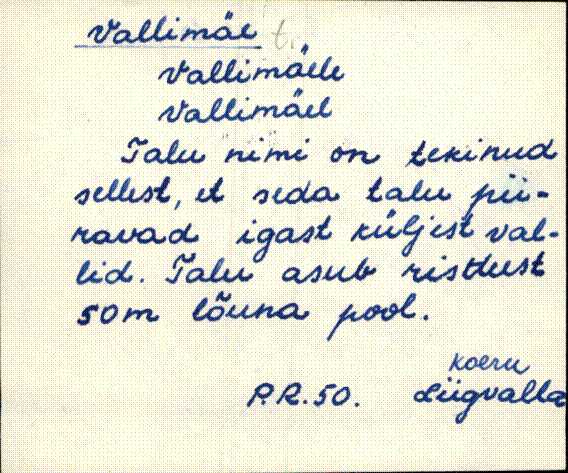 Vallimäe t.
Vallimäele
Vallimäel
Talu nimi on tekinud
sellest, et seda talu pii-
ravad igast küljest val-
lid. Talu asub ristteest
50m lõuna pool.
Koeru
P.R.50. Liigvalla